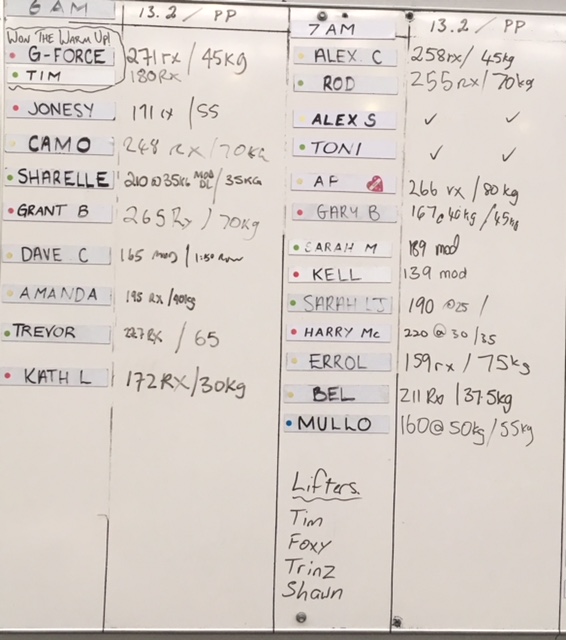 6 AM 13.2 / PP
WON THE WARM UP!
G-FORCE 271 rx / 45kg
TIM 180 Rx
JONESY 171 rx / 55
CAMO 248 RX / 70KG
SHARELLE 210 @ 35KG MOD DL / 35KG
GRANT B 265 Rx / 70kg
DAVE C 165 MOD / 1:50 Row
AMANDA 195 RX / 40kg
TREVOR 227 RX / 65
KATH L 172 RX / 30kg
7 AM 13.2 / PP
ALEX C 258rx / 45kg
ROD 255 rx / 70kg
ALEX S ✓ ✓
TONI ✓ ✓
AF 266 rx / 80kg
GARY B 167@40kg / 45kg
SARAH M 189 mod
KELL 139 mod
SARAH LJ 190 @25 /
HARRY Mc 220 @ 30 / 35
ERROL 159rx / 75kg
BEL 211 Rx / 37.5kg
MULLO 160@50kg / 55kg
Lifters.
Tim
Foxy
Trinz
Shawn